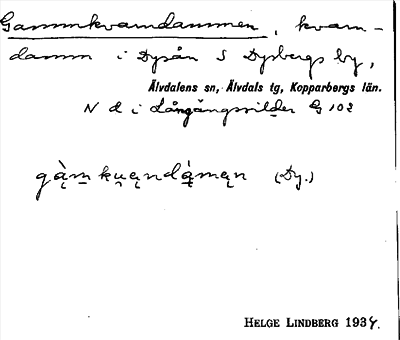 Gammkvarndammen, kvarn-
damm i Dysån S Dysbergs by,
Älvdalens sn, Älvdals tg, Kopparbergs län.
N d i Långängsvilder G 102
gàmkuąndámąn (Dy.)
HELGE LINDBERG 1934.